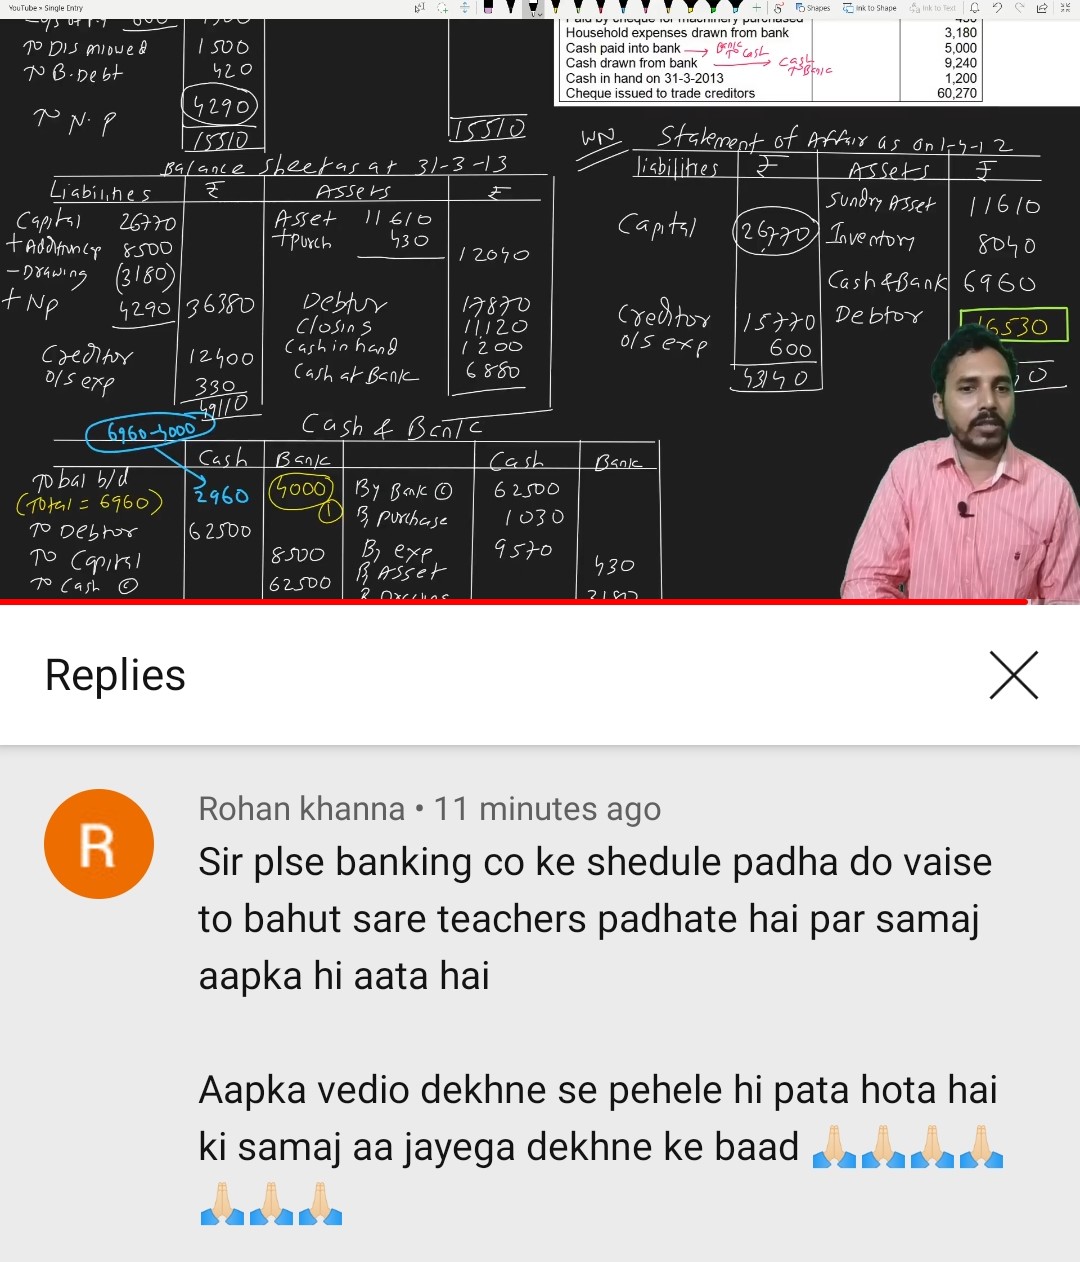 YouTube > Single Entry
Shapes
Ink to Shape
Ink to Text
1500
To Dis Allowed 1500
To B.Debt 420
To N.P 4290
15510 15510
Paid by cheque for machinery purchased 430
Household expenses drawn from bank 3,180
Cash paid into bank → Bank To Cash 5,000
Cash drawn from bank → Cash To Bank 9,240
Cash in hand on 31-3-2013 1,200
Cheque issued to trade creditors 60,270
Balance Sheet as at 31-3-13
Liabilities ₹ Assets ₹
Capital 26770 Asset 11610
8500 + Purch 430 12040
- Drawing (3180)
+ NP 4290 36380 Debtor 17870
Closing 11,120
Creditor 12400 Cash in hand 1200
o/s exp 330 Cash at Bank 6880
49110
WN Statement of Affair as on 1-4-12
liabilities ₹ Assets ₹
Sundry Asset 11610
Capital 26,770 Inventory 8040
Cash & Bank 6960
Creditor 15770 Debtor 16530
o/s exp 600
43140
6960-4000
Cash & Bank
Cash Bank Cash Bank
To bal b/d 2960 4000 By Bank © 62500
(Total = 6960) 1 By Purchase 1030
To Debtor 62500 By exp 9570
To Capital 8500 By Asset 430
To Cash © 62500
Replies
R
Rohan khanna • 11 minutes ago
Sir plse banking co ke shedule padha do vaise
to bahut sare teachers padhate hai par samaj
aapka hi aata hai
Aapka vedio dekhne se pehele hi pata hota hai
ki samaj aa jayega dekhne ke baad 🙏🏻🙏🏻🙏🏻🙏🏻
🙏🏻🙏🏻🙏🏻